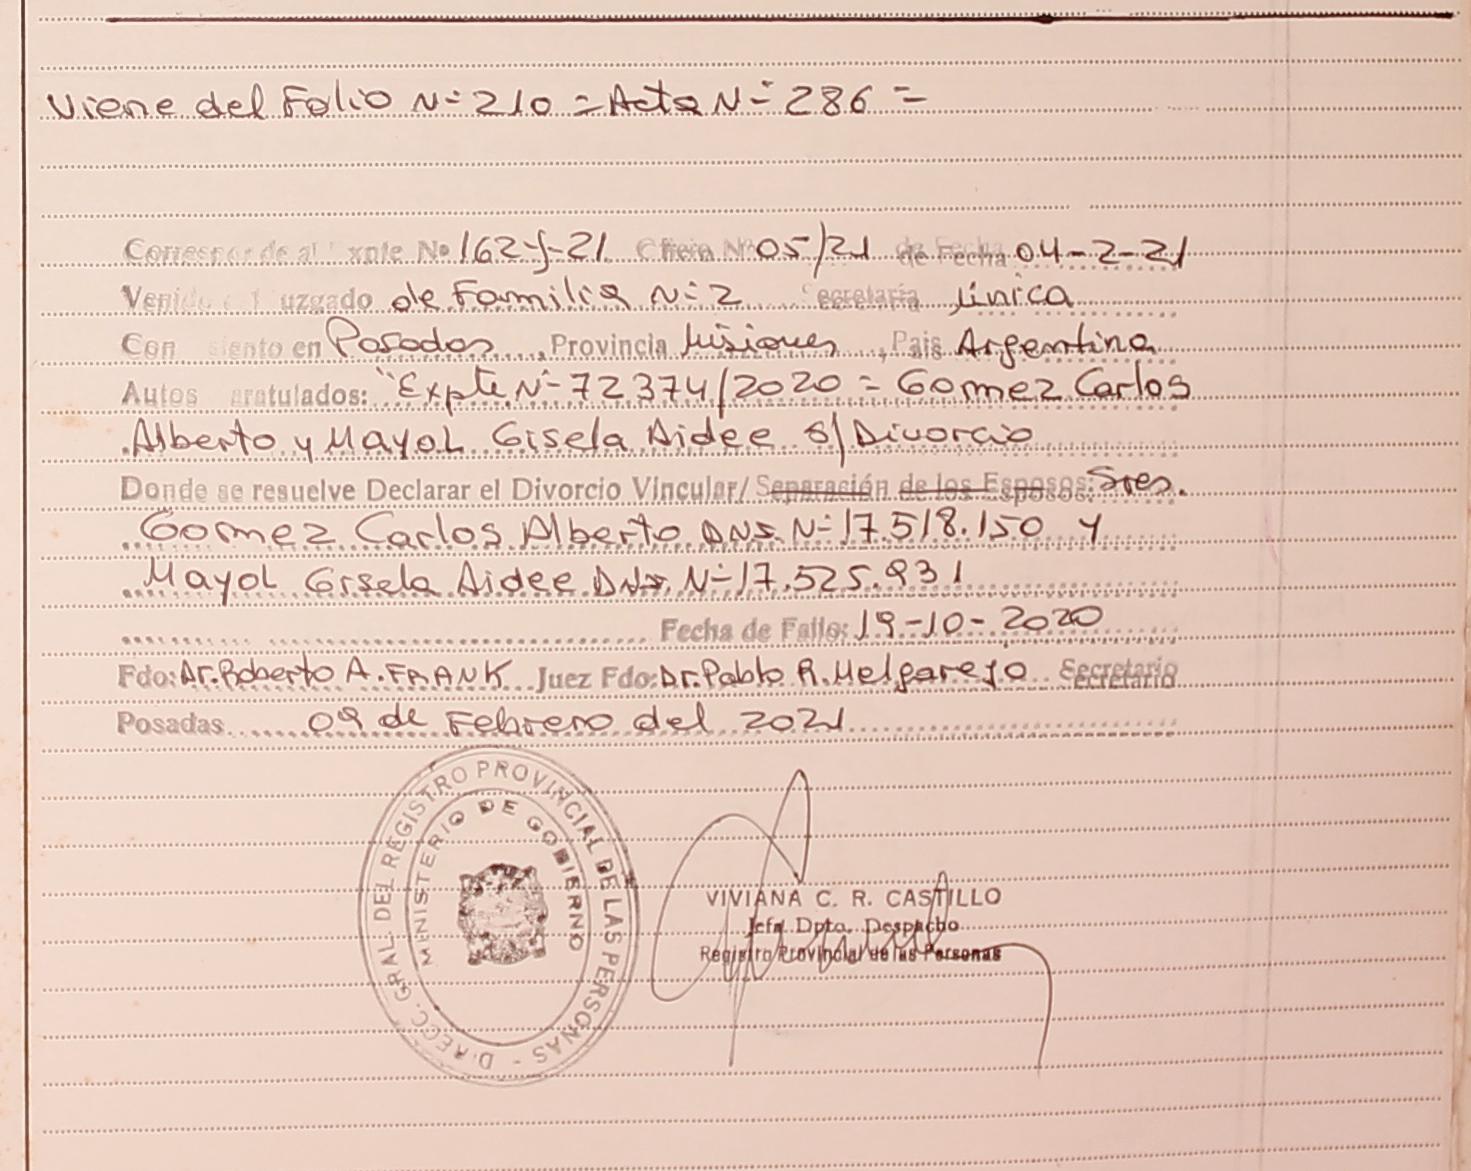 Viene del Folio Nº 210 = Acta Nº 286 =
Corresponde al Expte Nº 162-J-21 Oficio Nº 05/21 de Fecha 04-2-21
Venido del Juzgado de Familia Nº 2 Secretaría única
Con siento en Posadas, Provincia Misiones, Pais Argentina
Autos aratulados: "Expte. Nº 72374/2020 = Gomez Carlos
Alberto y Mayol Gisela Aidee S/ Divorcio
Donde se resuelve Declarar el Divorcio Vincular/ Separación de los Esposos: Sres.
Gomez Carlos Alberto DNI. Nº 17.518.150 y
Mayol Gisela Aidee DNI. Nº 17.525.931
Fecha de Fallo: 19-10-2020
Fdo: Dr. Roberto A. FRANK Juez Fdo: Dr. Pablo R. Melgarejo Secretario
Posadas 09 de Febrero del 2021
DIRECC. GRAL. DEL REGISTRO PROVINCIAL DE LAS PERSONAS -
MINISTERIO DE GOBIERNO
VIVIANA C. R. CASTILLO
Jefa Dpto. Despacho
Registro Provincial de las Personas